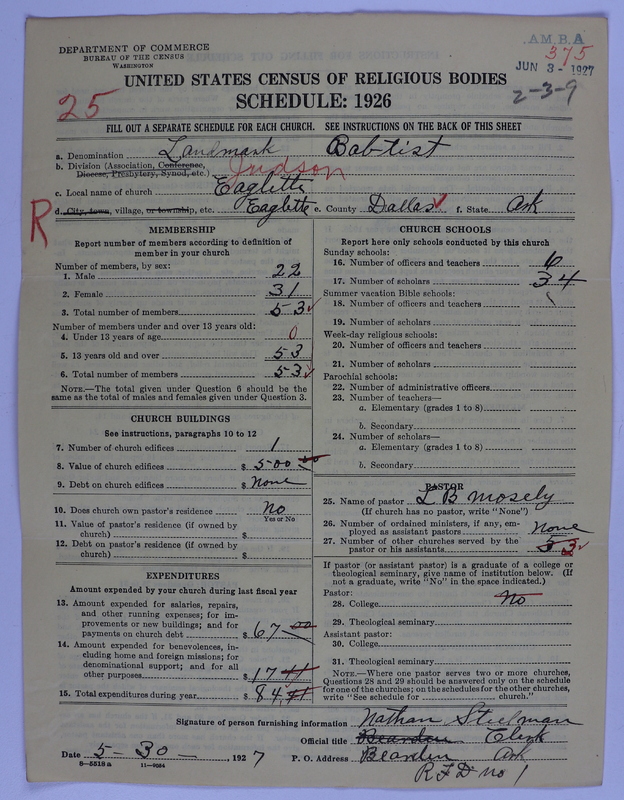 DEPARTMENT OF COMMERCE
BUREAU OF THE CENSUS
WASHINGTON
A.M.B.A
375
JUN 3 - 1927
2-3-9
25
UNITED STATES CENSUS OF RELIGIOUS BODIES
SCHEDULE: 1926
FILL OUT A SEPARATE SCHEDULE FOR EACH CHURCH. SEE INSTRUCTIONS ON THE BACK OF THIS SHEET
a. Denomination Landmark Babtist
b. Division (Association, Conference, Diocese, Presbytery, Synod, etc.) Judson
c. Local name of church Eaglette
R
d. City, town, village, or township, etc. Eaglette e. County Dallas f. State Ark
MEMBERSHIP
Report number of members according to definition of
member in your church
Number of members, by sex:
1. Male 22
2. Female 31
3. Total number of members 53
Number of members under and over 13 years old:
4. Under 13 years of age 0
5. 13 years old and over 53
6. Total number of members 53
NOTE.—The total given under Question 6 should be the
same as the total of males and females given under Question 3.
CHURCH BUILDINGS
See instructions, paragraphs 10 to 12
7. Number of church edifices 1
8. Value of church edifices $ 500 00
9. Debt on church edifices $ none
10. Does church own pastor's residence No
Yes or No
11. Value of pastor's residence (if owned by
church) $
12. Debt on pastor's residence (if owned by
church) $
EXPENDITURES
Amount expended by your church during last fiscal year
13. Amount expended for salaries, repairs,
and other running expenses; for im-
provements or new buildings; and for
payments on church debt $ 67 00
14. Amount expended for benevolences, in-
cluding home and foreign missions; for
denominational support; and for all
other purposes $ 17 41
15. Total expenditures during year $ 84 41
CHURCH SCHOOLS
Report here only schools conducted by this church
Sunday schools:
16. Number of officers and teachers 6
17. Number of scholars 34
Summer vacation Bible schools:
18. Number of officers and teachers
19. Number of scholars
Week-day religious schools:
20. Number of officers and teachers
21. Number of scholars
Parochial schools:
22. Number of administrative officers
23. Number of teachers—
a. Elementary (grades 1 to 8)
b. Secondary
24. Number of scholars—
a. Elementary (grades 1 to 8)
b. Secondary
PASTOR
25. Name of pastor L B Mosely
(If church has no pastor, write "None")
26. Number of ordained ministers, if any, em-
ployed as assistant pastors none
27. Number of other churches served by the
pastor or his assistants 3
If pastor (or assistant pastor) is a graduate of a college or
theological seminary, give name of institution below. (If
not a graduate, write "No" in the space indicated.)
Pastor:
28. College No
29. Theological seminary
Assistant pastor:
30. College
31. Theological seminary
NOTE.—Where one pastor serves two or more churches,
Questions 28 and 29 should be answered only on the schedule
for one of the churches; on the schedules for the other churches,
write "See schedule for church."
Signature of person furnishing information Nathan Steelman
Official title Bearden Clerk
Date 5-30- 1927 P. O. Address Bearden Ark
8-5518a 11-9084
R F D no 1